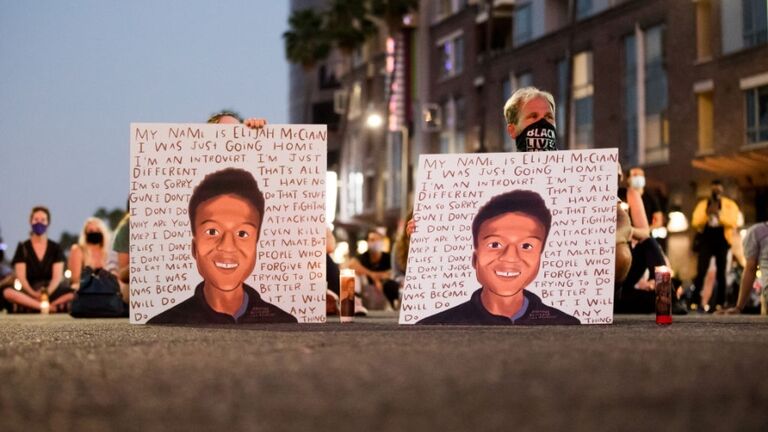 MY NAME IS ELIJAH McCLAIN
I WAS JUST GOING HOME
I'M AN INTROVERT I'M JUST
DIFFERENT THAT'S ALL
I'M SO SORRY I HAVE NO
GUN I DON'T DO THAT STUFF
I DON'T DO ANY FIGHTING
WHY ARE YOU ATTACKING
ME? I DON'T EVEN KILL
FLIES I DON'T EAT MEAT. BUT
I DON'T JUDGE PEOPLE WHO
DO EAT MEAT FORGIVE ME
ALL I WAS TRYING TO DO
WAS BECOME BETTER I
WILL DO WILL DO
ANY THING
BLACK
LIVES
MY NAME IS ELIJAH McCLAIN
I WAS JUST GOING HOME
I'M AN INTROVERT I'M JUST
DIFFERENT THAT'S ALL
I'M SO SORRY I HAVE NO
GUN I DON'T DO THAT STUFF
I DON'T DO ANY FIGHTING
WHY ARE YOU ATTACKING
ME? I DON'T EVEN KILL
FLIES I DON'T EAT MEAT. BUT
I DON'T JUDGE PEOPLE WHO
DO EAT MEAT FORGIVE ME
ALL I WAS TRYING TO DO
WAS BECOME BETTER I
WILL DO I WILL
DO ANY THING